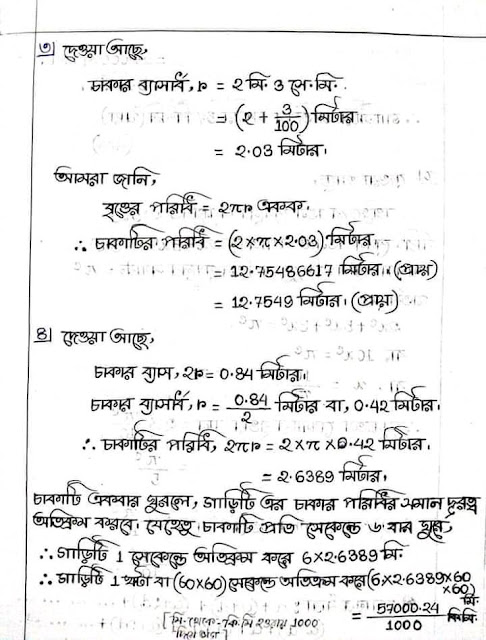 ৩] দেওয়া আছে,
চাকার ব্যাসার্ধ, r = 2 মি. 3 সে.মি.
= (2 + 3/100) মিটার
= 2.03 মিটার।
আমরা জানি,
বৃত্তের পরিধি = 2πr একক.
∴ চাকাটির পরিধি = (2×π×2.03) মিটার.
= 12.75486617 মিটার. (প্রায়)
= 12.7549 মিটার। (প্রায়)
৪] দেওয়া আছে,
চাকার ব্যাস, 2r = 0.84 মিটার।
চাকার ব্যাসার্ধ, r = 0.84/2 মিটার বা, 0.42 মিটার.
∴ চাকাটির পরিধি, 2πr = 2×π×0.42 মিটার.
= 2.6389 মিটার.
চাকাটি একবার ঘুরলে, গাড়িটি এর চাকার পরিধির সমান দূরত্ব
অতিক্রম করবে। যেহেতু চাকাটি প্রতি সেকেন্ডে ৬ বার ঘুরে,
∴ গাড়িটি 1 সেকেন্ডে অতিক্রম করে 6×2.6389 মি.
∴ গাড়িটি 1 ঘন্টা বা (60×60) সেকেন্ডে অতিক্রম করে (6×2.6389×60×60) মি.
= 57000.24/1000 কি.মি.
[মি. থেকে কি.মি হওয়ায় 1000 দিয়ে ভাগ]